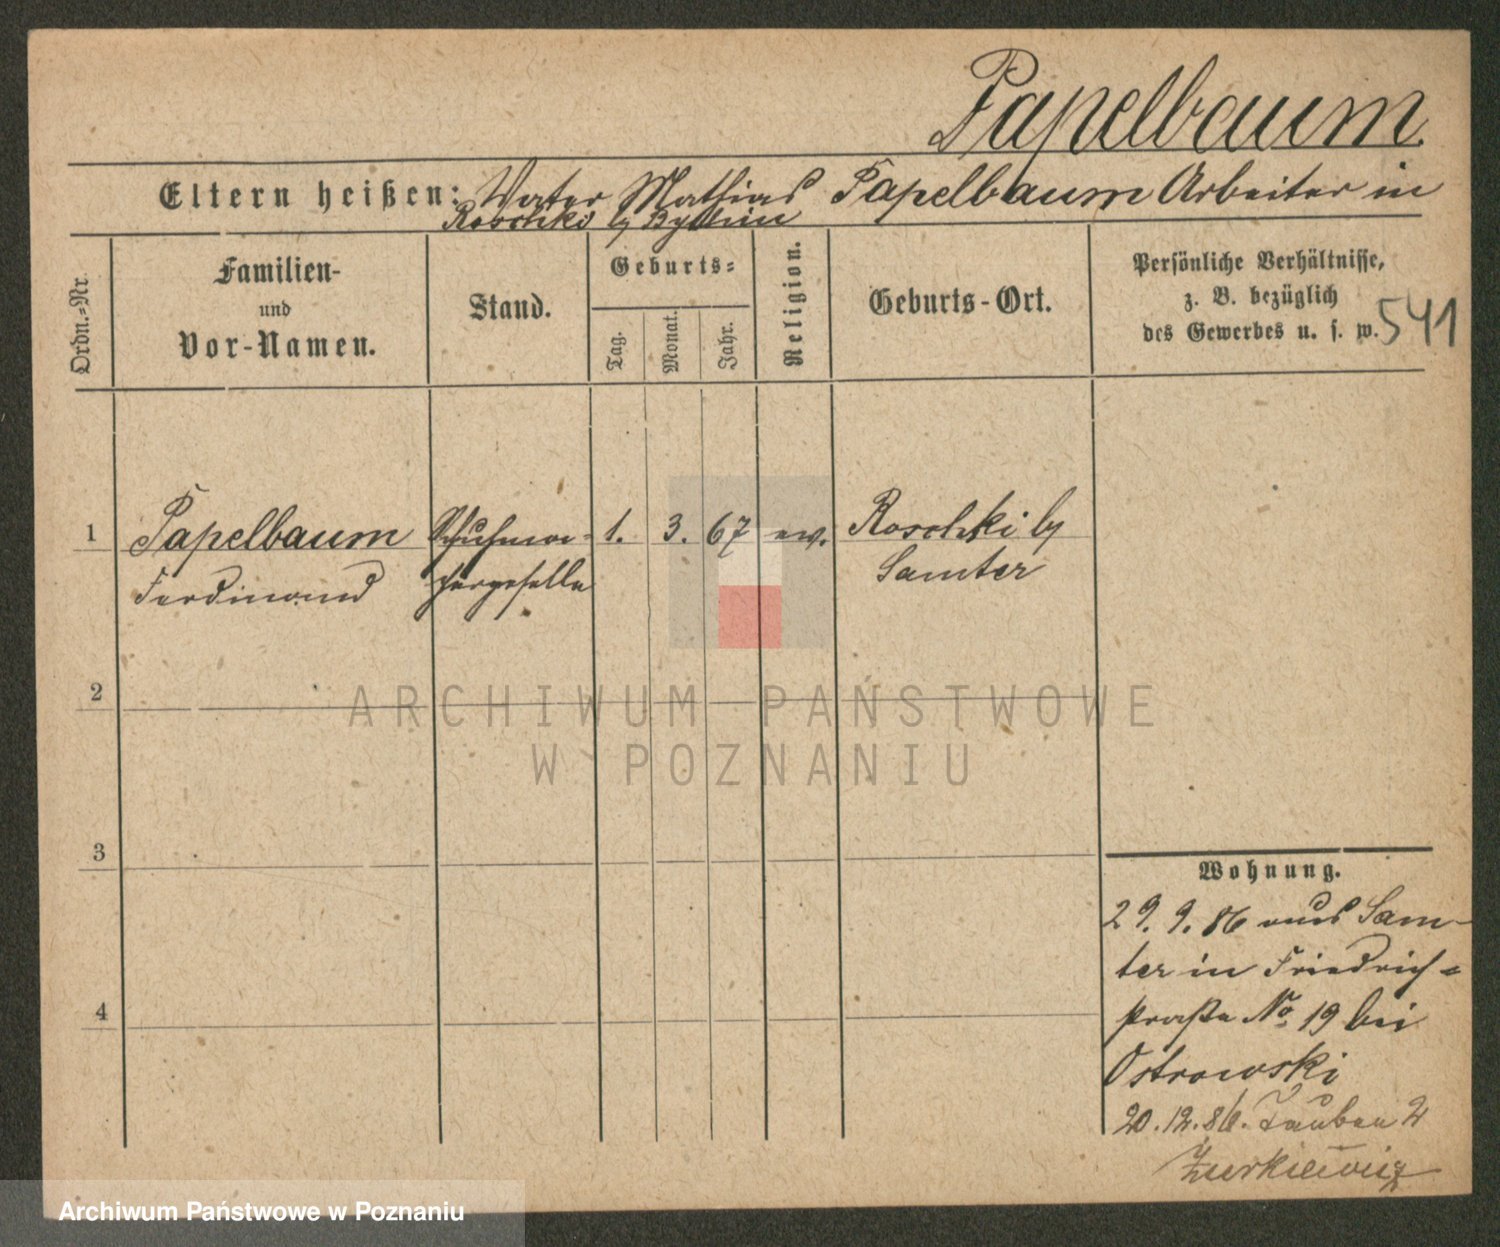 Papelbaum
Eltern heißen: Vater Mathias Papelbaum Arbeiter in
Roschki b/
Ordn.-Nr.
Familien-
und
Vor-Namen.
Stand.
Geburts-
Tag.
Monat.
Jahr.
Religion.
Geburts-Ort.
Persönliche Verhältnisse,
z. B. bezüglich
des Gewerbes u. s. w.
541
1
Papelbaum
Ferdinand
Schuhma-
chergeselle
1.
3.
67
ev.
Roschki b/
Samter
2
3
4
ARCHIWUM PAŃSTWOWE
W POZNANIU
Wohnung.
29. 9. 86 aus Sam-
ter in Friedrich-
straße No 19 bei
Ostrowski
20. 12. 86. Tauben 2
Zurkiewicz
Archiwum Państwowe w Poznaniu